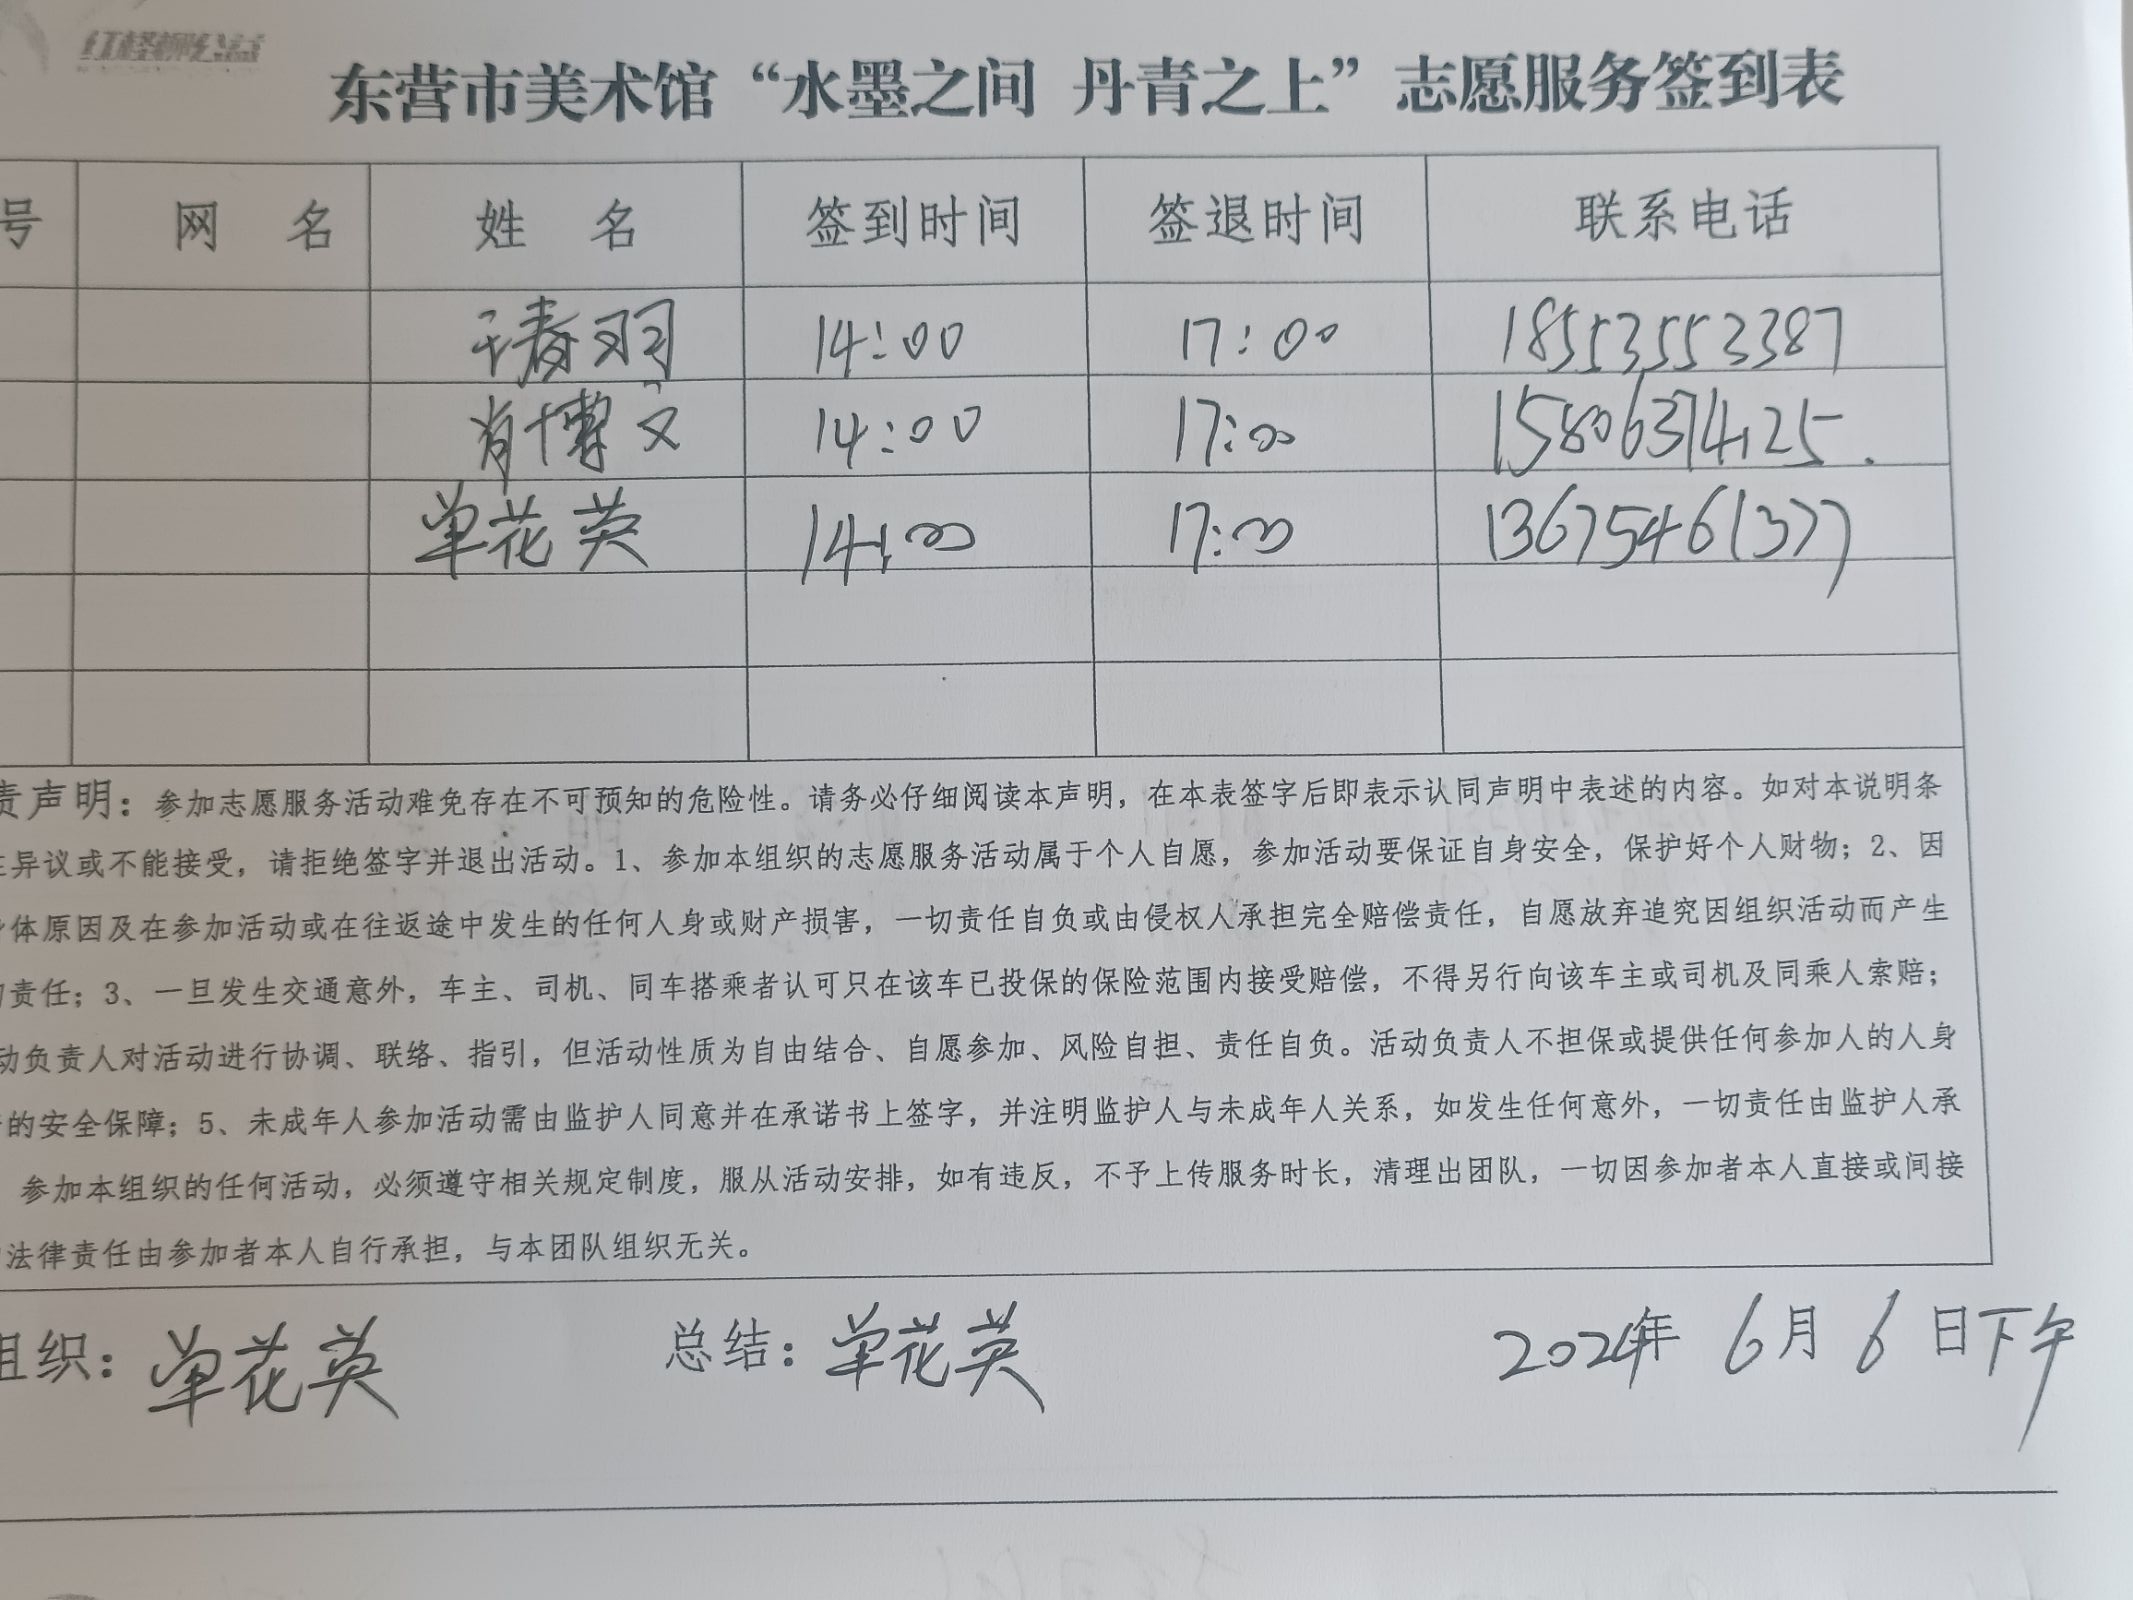 红柽柳公益
东营市美术馆“水墨之间 丹青之上”志愿服务签到表
号 网 名 姓 名 签到时间 签退时间 联系电话
春羽 14:00 17:00 18553553387
肖博文 14:00 17:00 15806374125.
单花英 14:00 17:00 13675461377
责声明：参加志愿服务活动难免存在不可预知的危险性。请务必仔细阅读本声明，在本表签字后即表示认同声明中表述的内容。如对本说明条
异议或不能接受，请拒绝签字并退出活动。1、参加本组织的志愿服务活动属于个人自愿，参加活动要保证自身安全，保护好个人财物；2、因
体原因及在参加活动或在往返途中发生的任何人身或财产损害，一切责任自负或由侵权人承担完全赔偿责任，自愿放弃追究因组织活动而产生
责任；3、一旦发生交通意外，车主、司机、同车搭乘者认可只在该车已投保的保险范围内接受赔偿，不得另行向该车主或司机及同乘人索赔；
动负责人对活动进行协调、联络、指引，但活动性质为自由结合、自愿参加、风险自担、责任自负。活动负责人不担保或提供任何参加人的人身
的安全保障；5、未成年人参加活动需由监护人同意并在承诺书上签字，并注明监护人与未成年人关系，如发生任何意外，一切责任由监护人承
参加本组织的任何活动，必须遵守相关规定制度，服从活动安排，如有违反，不予上传服务时长，清理出团队，一切因参加者本人直接或间接
法律责任由参加者本人自行承担，与本团队组织无关。
组织：单花英 总结：单花英 2024年 6月 6日下午